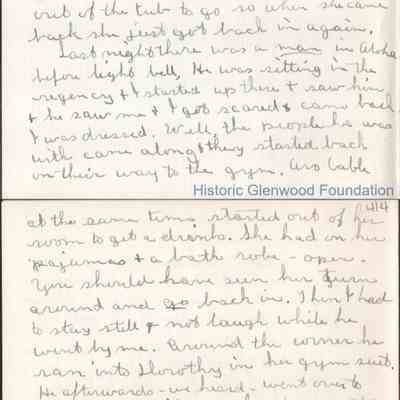 out of the tub to go so when she came
back she just got back in again.
Last night there was a man in Aloha
before light bell. He was sitting in the
regency + I started up there + saw him
+ he saw me + I got scared + came back
I was dressed. Well, the people he was
with came along + they started back
on their way to the gym. Cable
Historic Glenwood Foundation
414
at the same time started out of her
room to get a drink. She had on her
pajamas + a bath robe - open.
You should have seen her turn
around and go back in. Then I had
to stay still + not laugh while he
went by me. Around the corner he
ran into Dorothy in her gym suit.
He afterwards - we heard - went over to